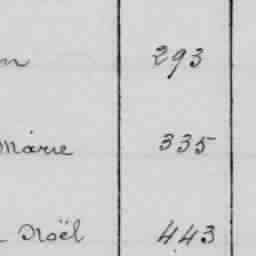 293
Marie 335
Noël 443